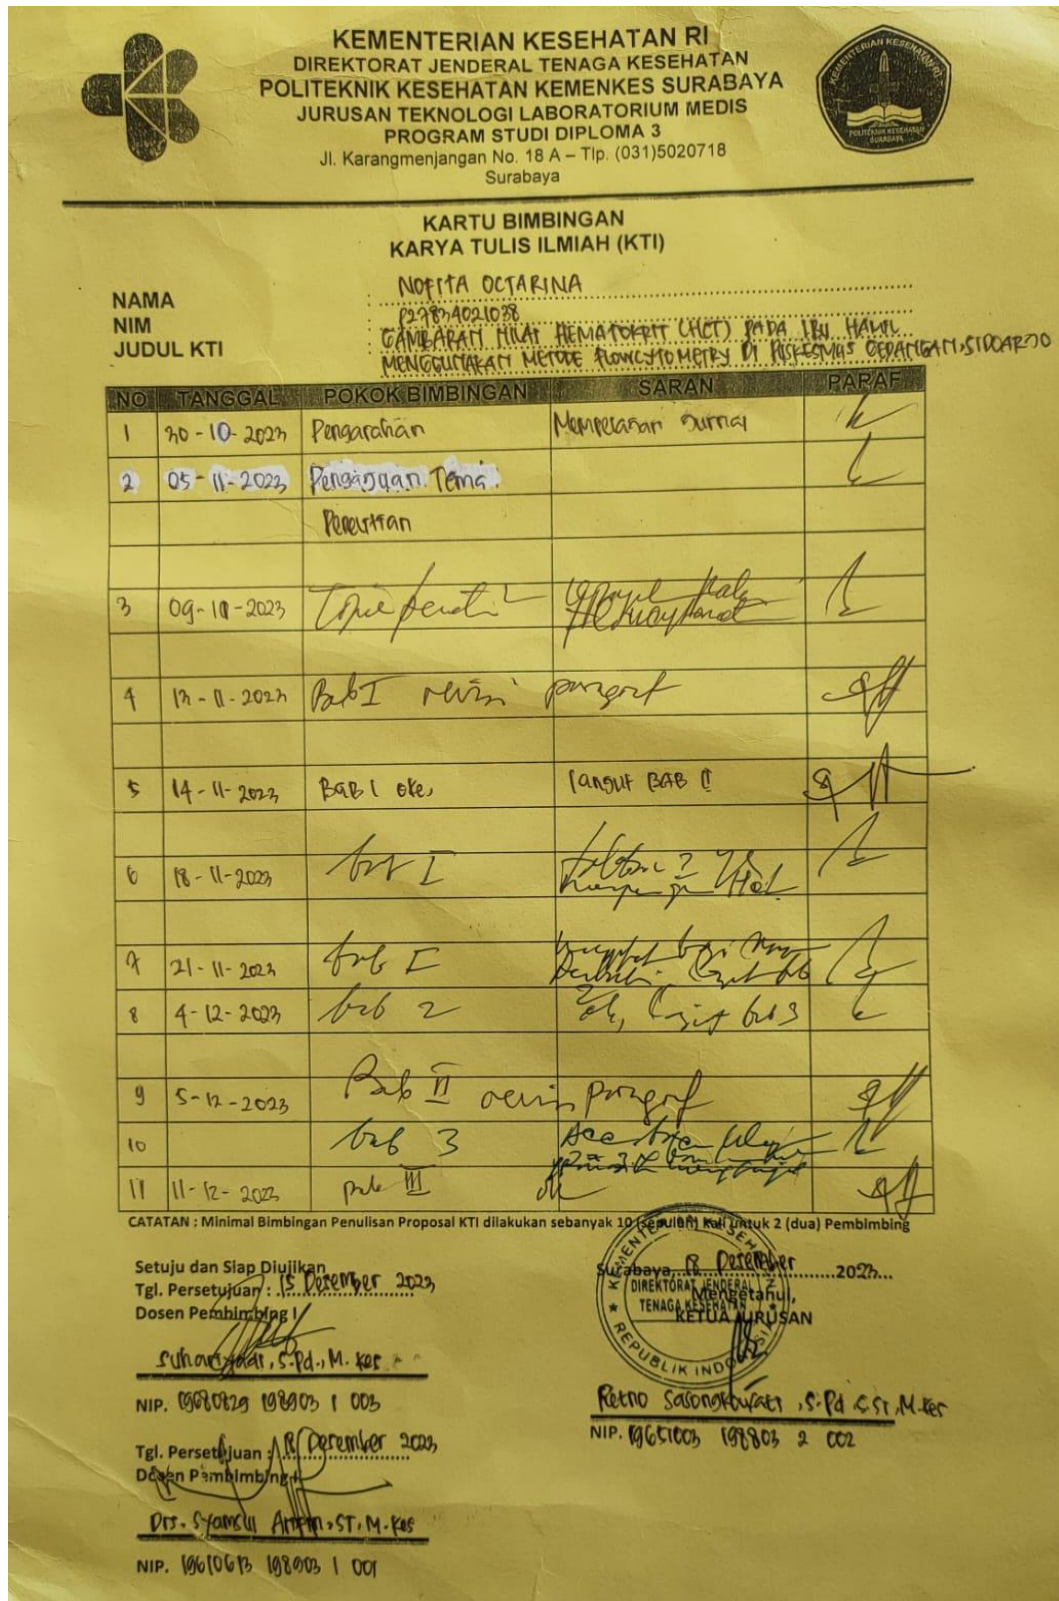 KEMENTERIAN KESEHATAN RI
DIREKTORAT JENDERAL TENAGA KESEHATAN
POLITEKNIK KESEHATAN KEMENKES SURABAYA
JURUSAN TEKNOLOGI LABORATORIUM MEDIS
PROGRAM STUDI DIPLOMA 3
Jl. Karangmenjangan No. 18 A – Tlp. (031)5020718
Surabaya
KEMENTERIAN KESEHATAN RI
POLITEKNIK KESEHATAN
SURABAYA
KARTU BIMBINGAN
KARYA TULIS ILMIAH (KTI)
NAMA : NOFITA OCTARINA
NIM : P27834021038
JUDUL KTI : GAMBARAN NILAI HEMATOKRIT (HCT) PADA IBU HAMIL
MENGGUNAKAN METODE FLOWCYTOMETRY DI PUSKESMAS GEDANGAN, SIDOARJO
NO TANGGAL POKOK BIMBINGAN SARAN PARAF
1 30-10-2023 Pengarahan Mempelajari Jurnal
2 05-11-2023 Pengajuan Tema
Penelitian
3 09-11-2023
4 13-11-2023 Bab I revisi paragraf
5 14-11-2023 BAB I oke, lanjut BAB II
6 18-11-2023 bab I
7 21-11-2023 bab I
8 4-12-2023 bab 2 lanjut bab 3
9 5-12-2023 Bab II revisi paragraf
10 bab 3 Acc
11 11-12-2023 bab III ok
CATATAN : Minimal Bimbingan Penulisan Proposal KTI dilakukan sebanyak 10 (sepuluh) Kali untuk 2 (dua) Pembimbing
Setuju dan Siap Diujikan
Tgl. Persetujuan : 15 Desember 2023
Dosen Pembimbing I
Suhariyadi, S.Pd., M.Kes
NIP. 19680829 198903 1 003
Tgl. Persetujuan : 18 Desember 2023
Dosen Pembimbing
Drs. Syamsul Arifin, ST, M.Kes
NIP. 19610613 198903 1 001
Surabaya, 18 Desember 2023
Mengetahui,
KETUA JURUSAN
KEMENTERIAN KESEHATAN
DIREKTORAT JENDERAL
TENAGA KESEHATAN
REPUBLIK INDONESIA
Retno Sasongkowati, S.Pd, S.Si, M.Kes
NIP. 19651003 198803 2 002